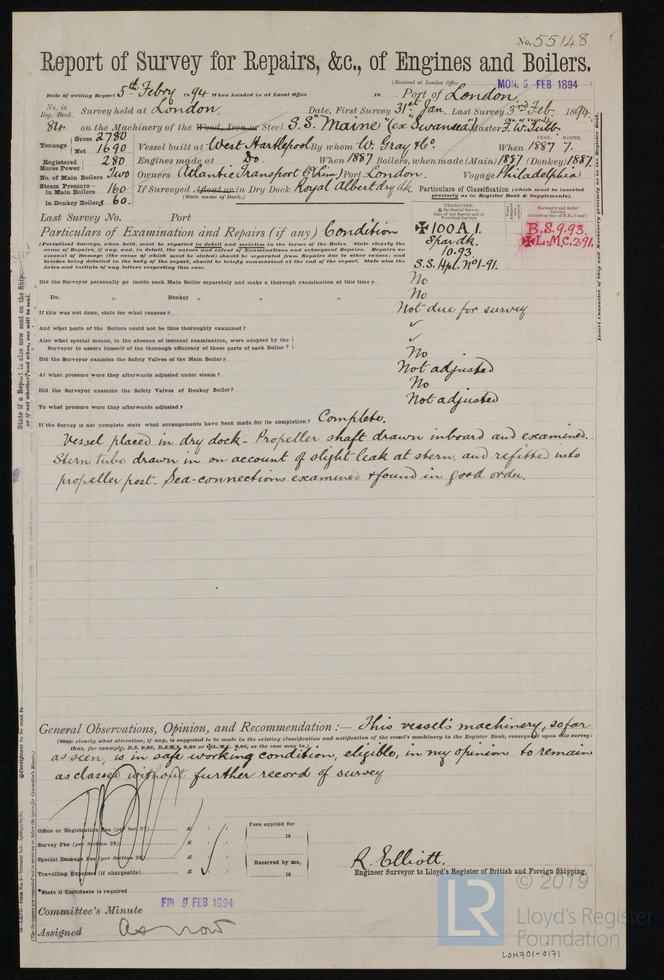 No. 55148
Report of Survey for Repairs, &c., of Engines and Boilers.
(Received at London Office MON. 5 FEB 1894
Date of writing Report 5th Febry 1894 When handed in at Local Office 18 Port of London
No. in Reg. Book. Survey held at London Date, First Survey 31st Jan. Last Survey 3rd Feb 1894.
84 on the Machinery of the Wood, Iron or Steel S.S. "Maine" (ex Swansea) Master
Tonnage Gross 2780 Net 1690 Vessel built at West Hartlepool By whom W. Gray & Co. When 1887 7.
Registered Horse Power 280 Engines made at Do. When 1887 Boilers, when made (Main) 1887 (Donkey) 1887
No. of Main Boilers Two Owners Atlantic Transport Co Port London. Voyage Philadelphia
Steam Pressure in Main Boilers 160 If Surveyed Afloat or in Dry Dock Royal Albert dry dk
(State name of Dock.)
in Donkey Boilers 60.
Particulars of Classification (which must be inserted precisely as in Register Book & Supplements).
Last Survey No. Port
Particulars of Examination and Repairs (if any) Condition
✠100A1.
Spar dk.
10.93
S.S. Hpl. No1-91.
B.S. 9.93.
✠L.M.C. 2.91.
(Periodical Surveys, when held, must be reported in detail and seriatim in the terms of the Rules. State clearly the
Did the Surveyor personally go inside each Main Boiler separately and make a thorough examination at this time? No
Do. " Donkey " " " No
If this was not done, state for what reasons? Not due for survey
And what parts of the Boilers could not be thus thoroughly examined? ✓
Also what special means, in the absence of internal examination, were adopted by the
Surveyor to assure himself of the thorough efficiency of those parts of each Boiler? ✓
Did the Surveyor examine the Safety Valves of the Main Boiler? No
At what pressure were they afterwards adjusted under steam? Not adjusted
Did the Surveyor examine the Safety Valves of Donkey Boiler? No
To what pressure were they afterwards adjusted? Not adjusted
If the Survey is not complete state what arrangements have been made for its completion? Complete.
Vessel placed in dry dock - Propeller shaft drawn inboard and examined.
Stern tube drawn in on account of slight leak at stern, and refitted into
propeller post. Sea-connections examined & found in good order.
General Observations, Opinion, and Recommendation :— This vessel's machinery, so far
(State clearly what alteration, if any, is suggested to be made in the existing classification and notification of the vessel's machinery in the Register Book, consequent upon this survey:
as seen, is in safe working condition, eligible, in my opinion to remain
as classed without further record of survey
Office or Registration Fee (per Sec. 27) £ : :
Fees applied for
18
Survey Fee (per Section 28) £ : :
Special Damage Fee (per Section 28) £ : :
Received by me,
18
Travelling Expenses (if chargeable) £ : :
R. Elliott.
Engineer Surveyor to Lloyd's Register of British and Foreign Shipping.
*State if Certificate is required
Committee's Minute FRI. 9 FEB 1894
Assigned As now
LR
© 2019
Lloyd's Register
Foundation
LON701-0171